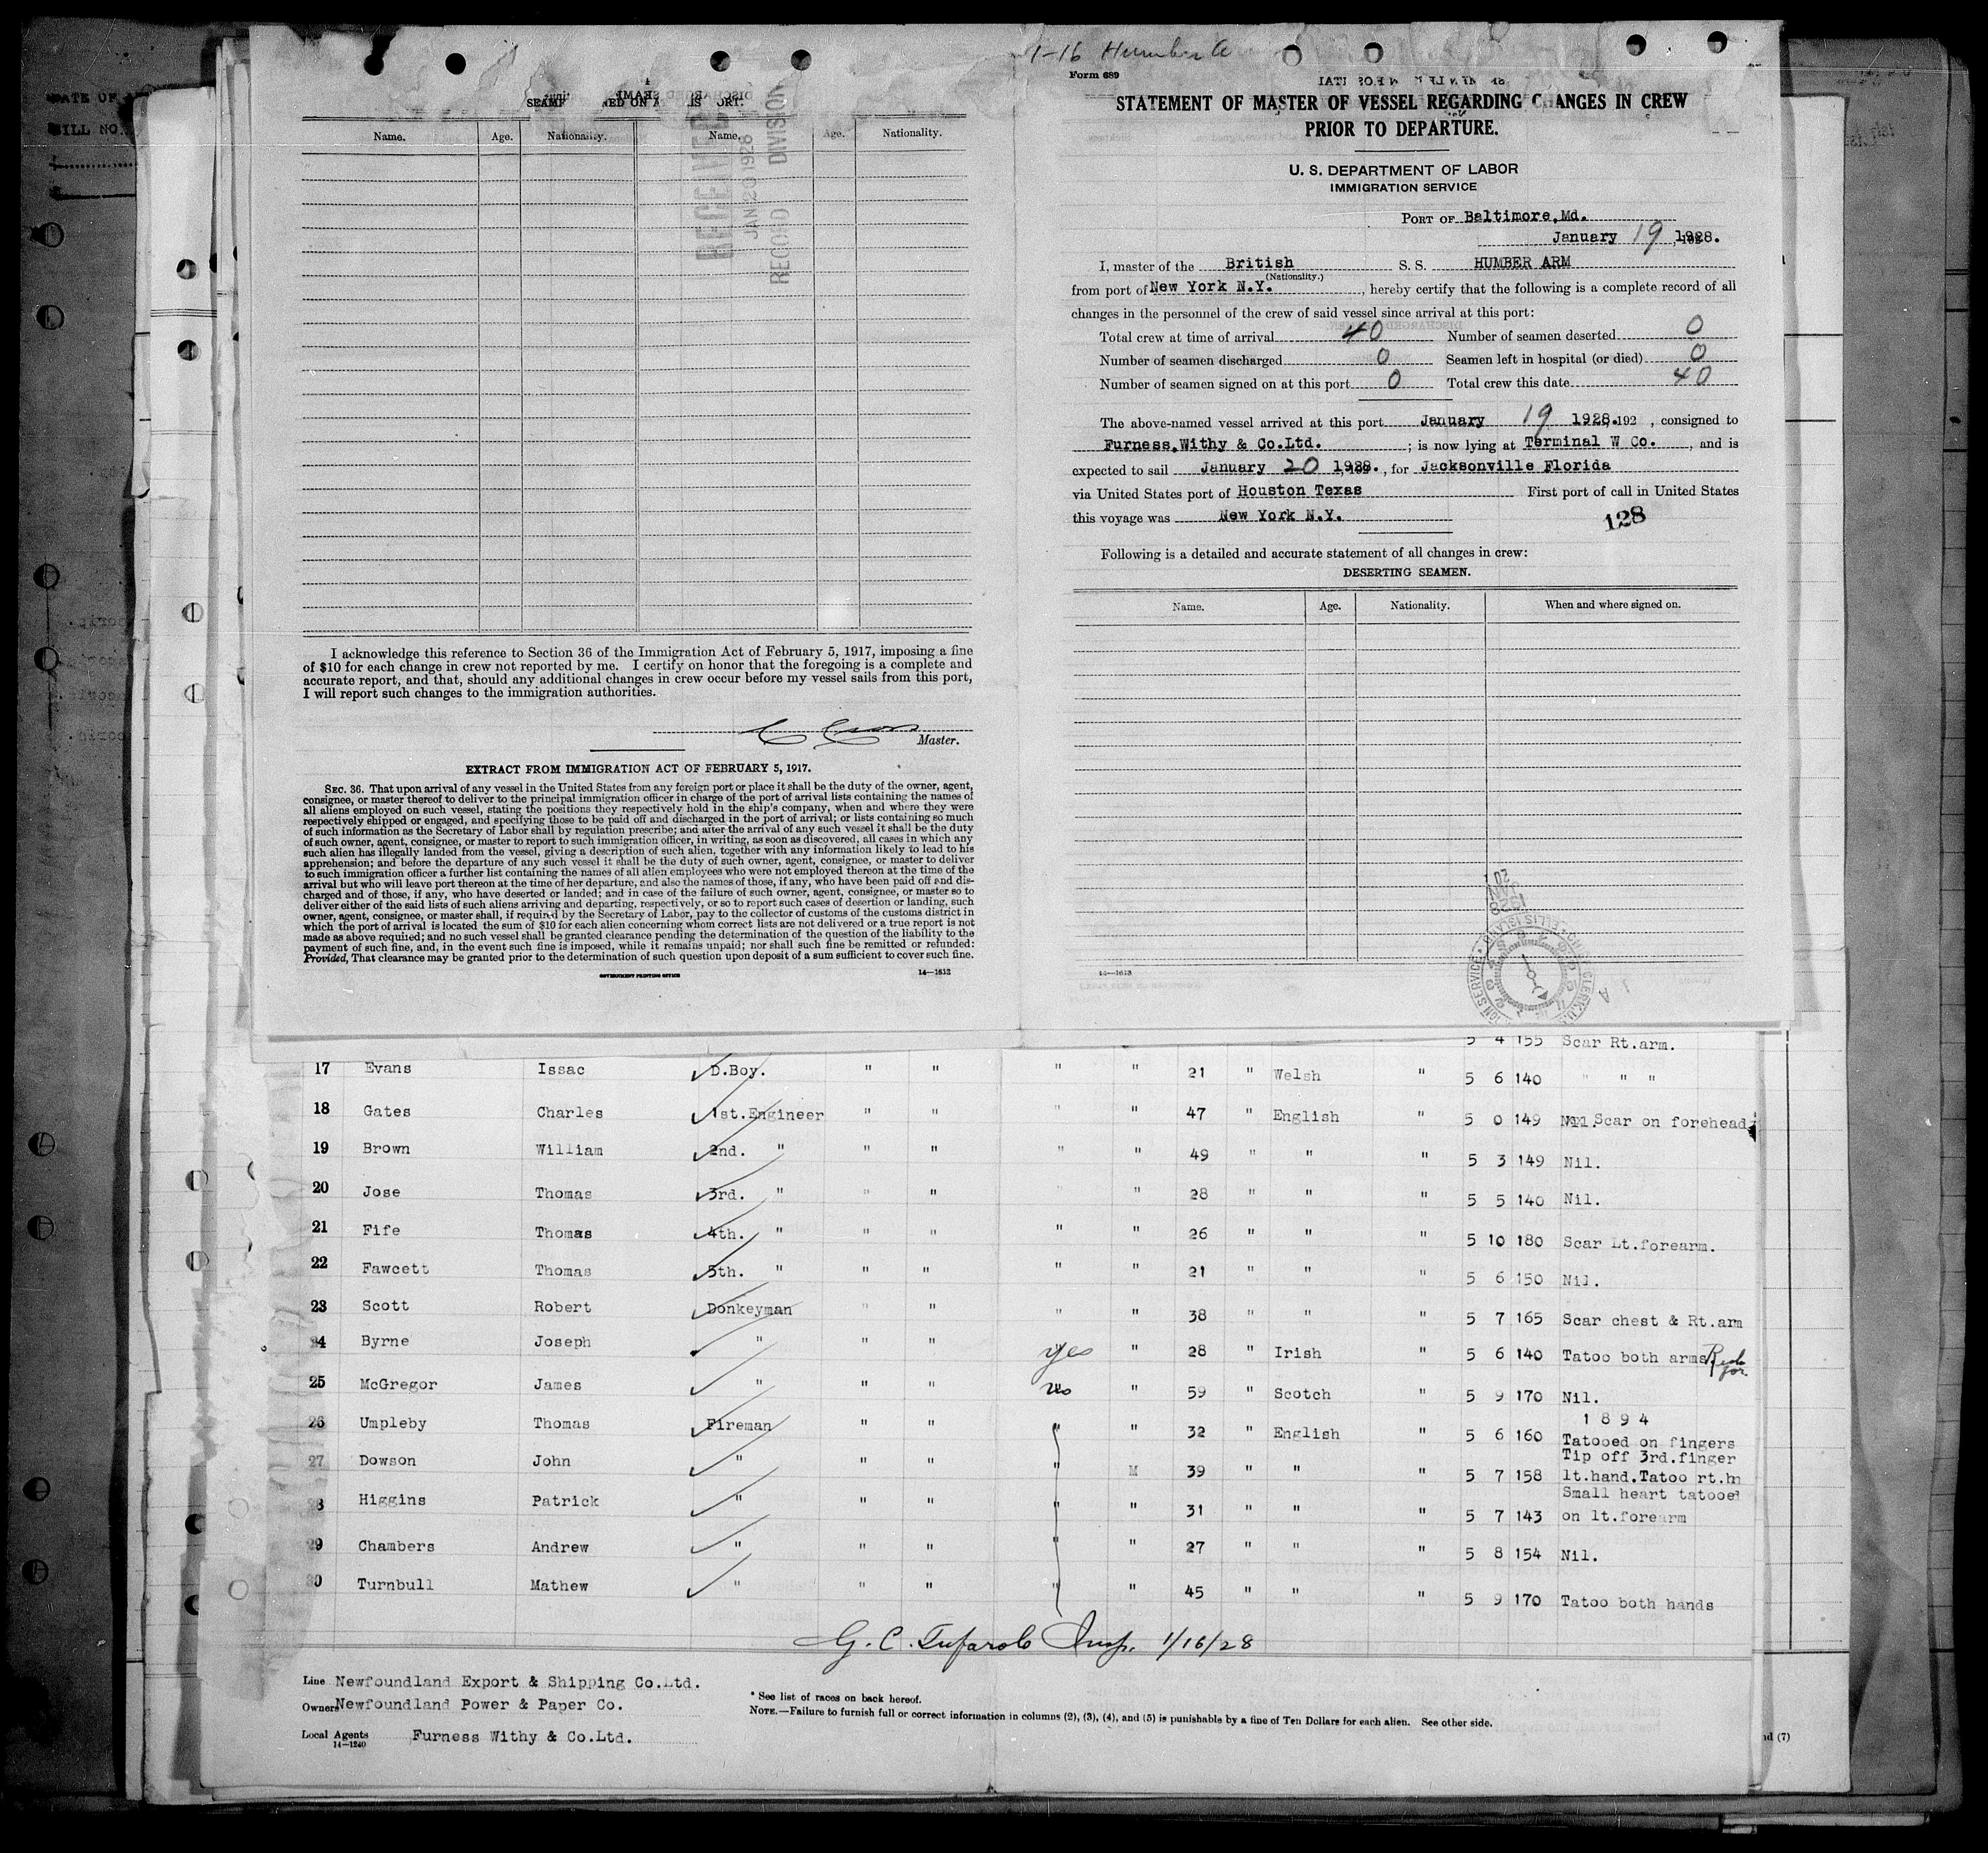 1-16 Humber A
Form 689
STATEMENT OF MASTER OF VESSEL REGARDING CHANGES IN CREW
PRIOR TO DEPARTURE.
U. S. DEPARTMENT OF LABOR
IMMIGRATION SERVICE
PORT OF Baltimore,Md.
January 19 1928.
I, master of the British S. S. HUMBER ARM
(Nationality.)
from port of New York N.Y. , hereby certify that the following is a complete record of all
changes in the personnel of the crew of said vessel since arrival at this port:
Total crew at time of arrival 40 Number of seamen deserted 0
Number of seamen discharged 0 Seamen left in hospital (or died) 0
Number of seamen signed on at this port 0 Total crew this date 40
The above-named vessel arrived at this port January 19 1928.192 , consigned to
Furness,Withy & Co.Ltd. ; is now lying at Terminal W Co. , and is
expected to sail January 20 1928. , for Jacksonville Florida
via United States port of Houston Texas First port of call in United States
this voyage was New York N.Y.
128
Following is a detailed and accurate statement of all changes in crew:
DESERTING SEAMEN.
Name. Age. Nationality. When and where signed on.
14—1613
Name. Age. Nationality. Name. Age. Nationality.
RECEIVED
JAN 20 1928
RECORD DIVISION
I acknowledge this reference to Section 36 of the Immigration Act of February 5, 1917, imposing a fine
of $10 for each change in crew not reported by me. I certify on honor that the foregoing is a complete and
accurate report, and that, should any additional changes in crew occur before my vessel sails from this port,
I will report such changes to the immigration authorities.
Master.
EXTRACT FROM IMMIGRATION ACT OF FEBRUARY 5, 1917.
SEC. 36. That upon arrival of any vessel in the United States from any foreign port or place it shall be the duty of the owner, agent,
consignee, or master thereof to deliver to the principal immigration officer in charge of the port of arrival lists containing the names of
all aliens employed on such vessel, stating the positions they respectively hold in the ship's company, when and where they were
respectively shipped or engaged, and specifying those to be paid off and discharged in the port of arrival; or lists containing so much
of such information as the Secretary of Labor shall by regulation prescribe; and after the arrival of any such vessel it shall be the duty
of such owner, agent, consignee, or master to report to such immigration officer, in writing, as soon as discovered, all cases in which any
such alien has illegally landed from the vessel, giving a description of such alien, together with any information likely to lead to his
apprehension; and before the departure of any such vessel it shall be the duty of such owner, agent, consignee, or master to deliver
to such immigration officer a further list containing the names of all alien employees who were not employed thereon at the time of the
arrival but who will leave port thereon at the time of her departure, and also the names of those, if any, who have been paid off and dis-
charged and of those, if any, who have deserted or landed; and in case of the failure of such owner, agent, consignee, or master so to
deliver either of the said lists of such aliens arriving and departing, respectively, or so to report such cases of desertion or landing, such
owner, agent, consignee, or master shall, if required by the Secretary of Labor, pay to the collector of customs of the customs district in
which the port of arrival is located the sum of $10 for each alien concerning whom correct lists are not delivered or a true report is not
made as above required; and no such vessel shall be granted clearance pending the determination of the question of the liability to the
payment of such fine, and, in the event such fine is imposed, while it remains unpaid; nor shall such fine be remitted or refunded:
Provided, That clearance may be granted prior to the determination of such question upon deposit of a sum sufficient to cover such fine.
GOVERNMENT PRINTING OFFICE 14—1613
5 4 155 Scar Rt.arm.
17 Evans Issac D.Boy. " " " " 21 " Welsh " 5 6 140 " " "
18 Gates Charles 1st.Engineer " " " " 47 " English " 5 0 149 Scar on forehead
19 Brown William 2nd. " " " " " 49 " " " 5 3 149 Nil.
20 Jose Thomas 3rd. " " " " " 28 " " " 5 5 140 Nil.
21 Fife Thomas 4th. " " " " " 26 " " " 5 10 180 Scar Lt.forearm.
22 Fawcett Thomas 5th. " " " " " 21 " " " 5 6 150 Nil.
23 Scott Robert Donkeyman " " " " 38 " " " 5 7 165 Scar chest & Rt.arm
24 Byrne Joseph " " " yes " 28 " Irish " 5 6 140 Tatoo both arms
25 McGregor James " " " " 59 " Scotch " 5 9 170 Nil.
26 Umpleby Thomas Fireman " " " " 32 " English " 5 6 160 1 8 9 4
Tatooed on fingers
27 Dowson John " " " " M 39 " " " 5 7 158 Tip off 3rd.finger
lt.hand.Tatoo rt.h
28 Higgins Patrick " " " " " 31 " " " 5 7 143 Small heart tatooed
on lt.forearm
29 Chambers Andrew " " " " " 27 " " " 5 8 154 Nil.
30 Turnbull Mathew " " " " " 45 " " " 5 9 170 Tatoo both hands
G. C. Tufarolo Insp. 1/16/28
Line Newfoundland Export & Shipping Co.Ltd.
Owners Newfoundland Power & Paper Co.
Local Agents Furness Withy & Co.Ltd.
14—1240
* See list of races on back hereof.
NOTE.—Failure to furnish full or correct information in columns (2), (3), (4), and (5) is punishable by a fine of Ten Dollars for each alien. See other side.